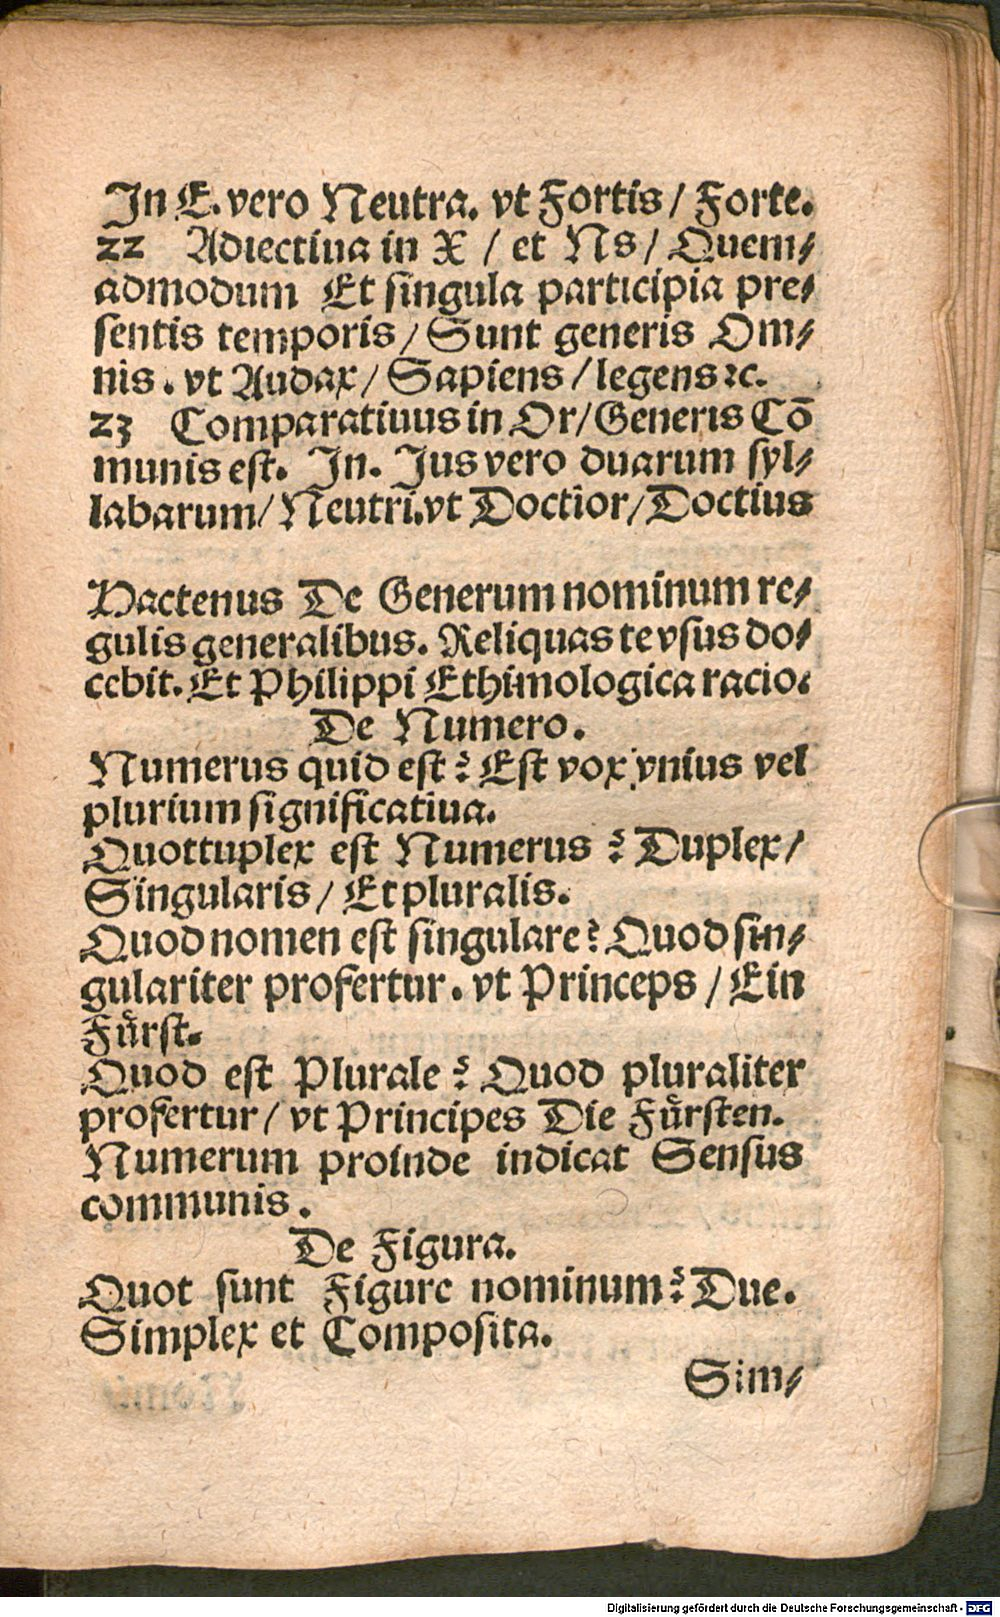 In E. vero Neutra. vt Fortis / Forte.
22 Adiectiua in X / et Ns / Quem⸗
admodum Et singula participia pre⸗
sentis temporis / Sunt generis Om⸗
nis. vt Audax / Sapiens / legens ⁊c.
23 Comparatiuus in Or / Generis Cō
munis est. In. Jus vero duarum syl⸗
labarum / Neutri. vt Doctior / Doctius
Hactenus De Generum nominum re⸗
gulis generalibus. Reliquas te vsus do⸗
cebit. Et Philippi Ethimologica racio.
De Numero.
Numerus quid est? Est vox vnius vel
plurium significatiua.
Quottuplex est Numerus? Duplex /
Singularis / Et pluralis.
Quod nomen est singulare? Quod sin⸗
gulariter profertur. vt Princeps / Ein
Fürst.
Quod est Plurale? Quod pluraliter
profertur / vt Principes Die Fürsten.
Numerum proinde indicat Sensus
communis.
De Figura.
Quot sunt Figure nominum? Due.
Simplex et Composita.
Sim⸗
Digitalisierung gefördert durch die Deutsche Forschungsgemeinschaft - DFG